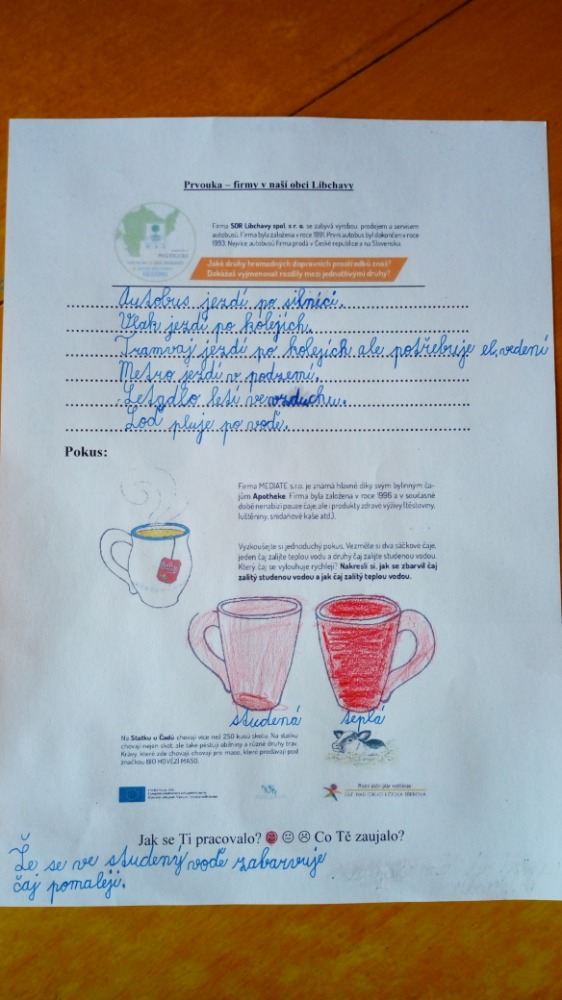 Prvouka – firmy v naší obci Libchavy
Firma SOR Libchavy spol. s r. o. se zabývá výrobou, prodejem a servisem
autobusů. Firma byla založena v roce 1991. První autobus byl dokončen v roce
1993. Nejvíce autobusů firma prodá v České republice a na Slovensku.
Jaké druhy hromadných dopravních prostředků znáš?
Dokážeš vyjmenovat rozdíly mezi jednotlivými druhy?
Autobus jezdí po silnici.
Vlak jezdí po kolejích.
Tramvaj jezdí po kolejích ale potřebuje el. vedení
Metro jezdí v podzemí.
Letadlo letí ve vzduchu.
Loď pluje po vodě.
Pokus:
Firma MEDIATE s.r.o. je známá hlavně díky svým bylinným ča-
jům Apotheke. Firma byla založena v roce 1996 a v současné
době nenabízí pouze čaje, ale i produkty zdravé výživy (těstoviny,
luštěniny, snídaňové kaše atd.).
Vyzkoušejte si jednoduchý pokus. Vezměte si dva sáčkové čaje,
jeden čaj zalijte teplou vodu a druhý čaj zalijte studenou vodou.
Který čaj se vylouhuje rychleji? Nakresli si, jak se zbarvil čaj
zalitý studenou vodou a jak čaj zalitý teplou vodou.
studená teplá
Na Statku u Čadů chovají více než 250 kusů skotu. Na statku
chovají nejen skot, ale také pěstují obilniny a různé druhy trav.
Krávy, které zde chovají, chovají pro maso, které prodávají pod
značkou BIO HOVĚZÍ MASO.
Jak se Ti pracovalo? Co Tě zaujalo?
Že se ve studený vodě zabarvuje
čaj pomaleji.